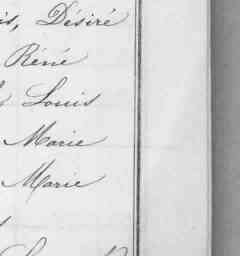 is, Désiré
René
Louis
Marie
Marie